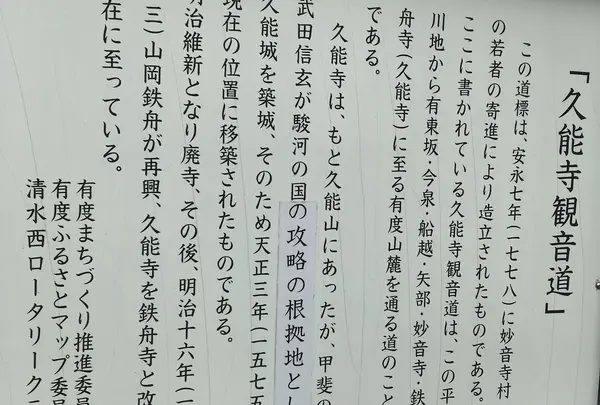 「久能寺観音道」
この道標は、安永七年(一七七八)に妙音寺村
の若者の寄進により造立されたものである。
ここに書かれている久能寺観音道は、この平
川地から有東坂・今泉・船越・矢部・妙音寺・鉄
舟寺(久能寺)に至る有度山麓を通る道のこと
である。
久能寺は、もと久能山にあったが、甲斐の
武田信玄が駿河の国の攻略の根拠地とし
久能城を築城、そのため天正三年(一五七五
現在の位置に移築されたものである。
明治維新となり廃寺、その後、明治十六年(一
三)山岡鉄舟が再興、久能寺を鉄舟寺と改
在に至っている。
有度まちづくり推進委員
有度ふるさとマップ委員
清水西ロータリーク